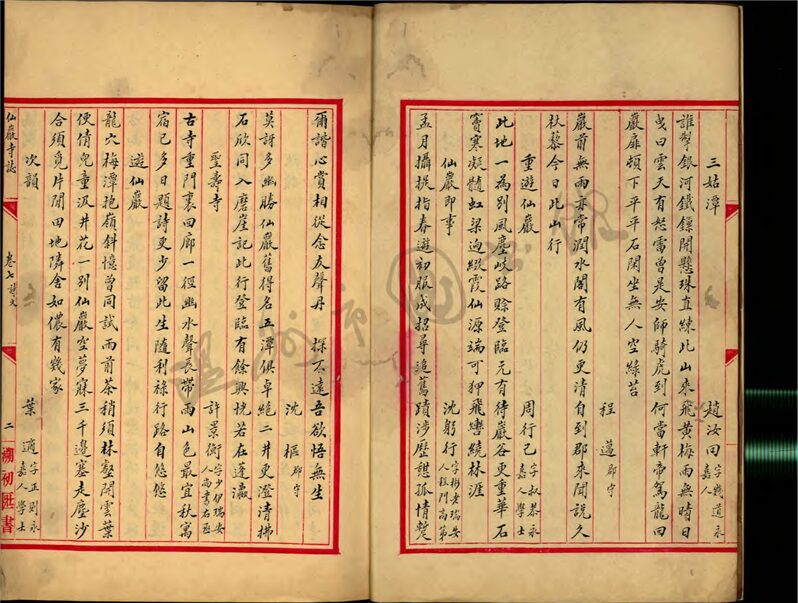 三姑潭 趙汝回字幾道永嘉人
誰幫銀河鐵鏢開懸珠直練此山來飛黃梅雨無時日
曳曰雲天有怒雷曾是安師騎虎到何當軒帝駕龍回
巖扉傾下平平石閑坐無人空綠苔
程邁郡守
巖前無雨亦常潤水閣有風仍更清自到郡來聞說久
杖藜今日此山行
重遊仙巖 周行己字叔恭永嘉人學士
此地一為別風塵歧路賒登臨元有待巖谷更重華石
竇寒凝髓虹梁迥緞霞仙源端可狎飛轡繞林涯
仙巖即事 沈躬行字彬老瑞安人程門高第
孟月攝提指春遊初服成招尋追舊蹟涉歷愜孤情蹔
爾諧心賞相從念友聲丹 探不遠吾欲悟無生
沈樞郡守
莫訝多幽勝仙巖舊得名五潭俱卓絕二井更澄清拂
石欣同入磨崖記此行登臨有餘興恍若在蓬瀛
聖壽寺 許景衡字少伊瑞安人尚書右丞
古寺重門裏回廊一徑幽水聲長帶雨山色最宜秋寓
宿已多日題詩更少留此生隨利祿行路自悠悠
遊仙巖
龍穴梅潭抱嶺斜憶曾同試雨前茶稍須林壑開雲葉
便倩兒童汲井花一別仙巖空夢寐三千邊塞走塵沙
合須覓片閒田地隣舍如儂有幾家
次韻 葉適字正則永嘉人學士
仙巖寺誌 卷七詩文 二 潮初匯書